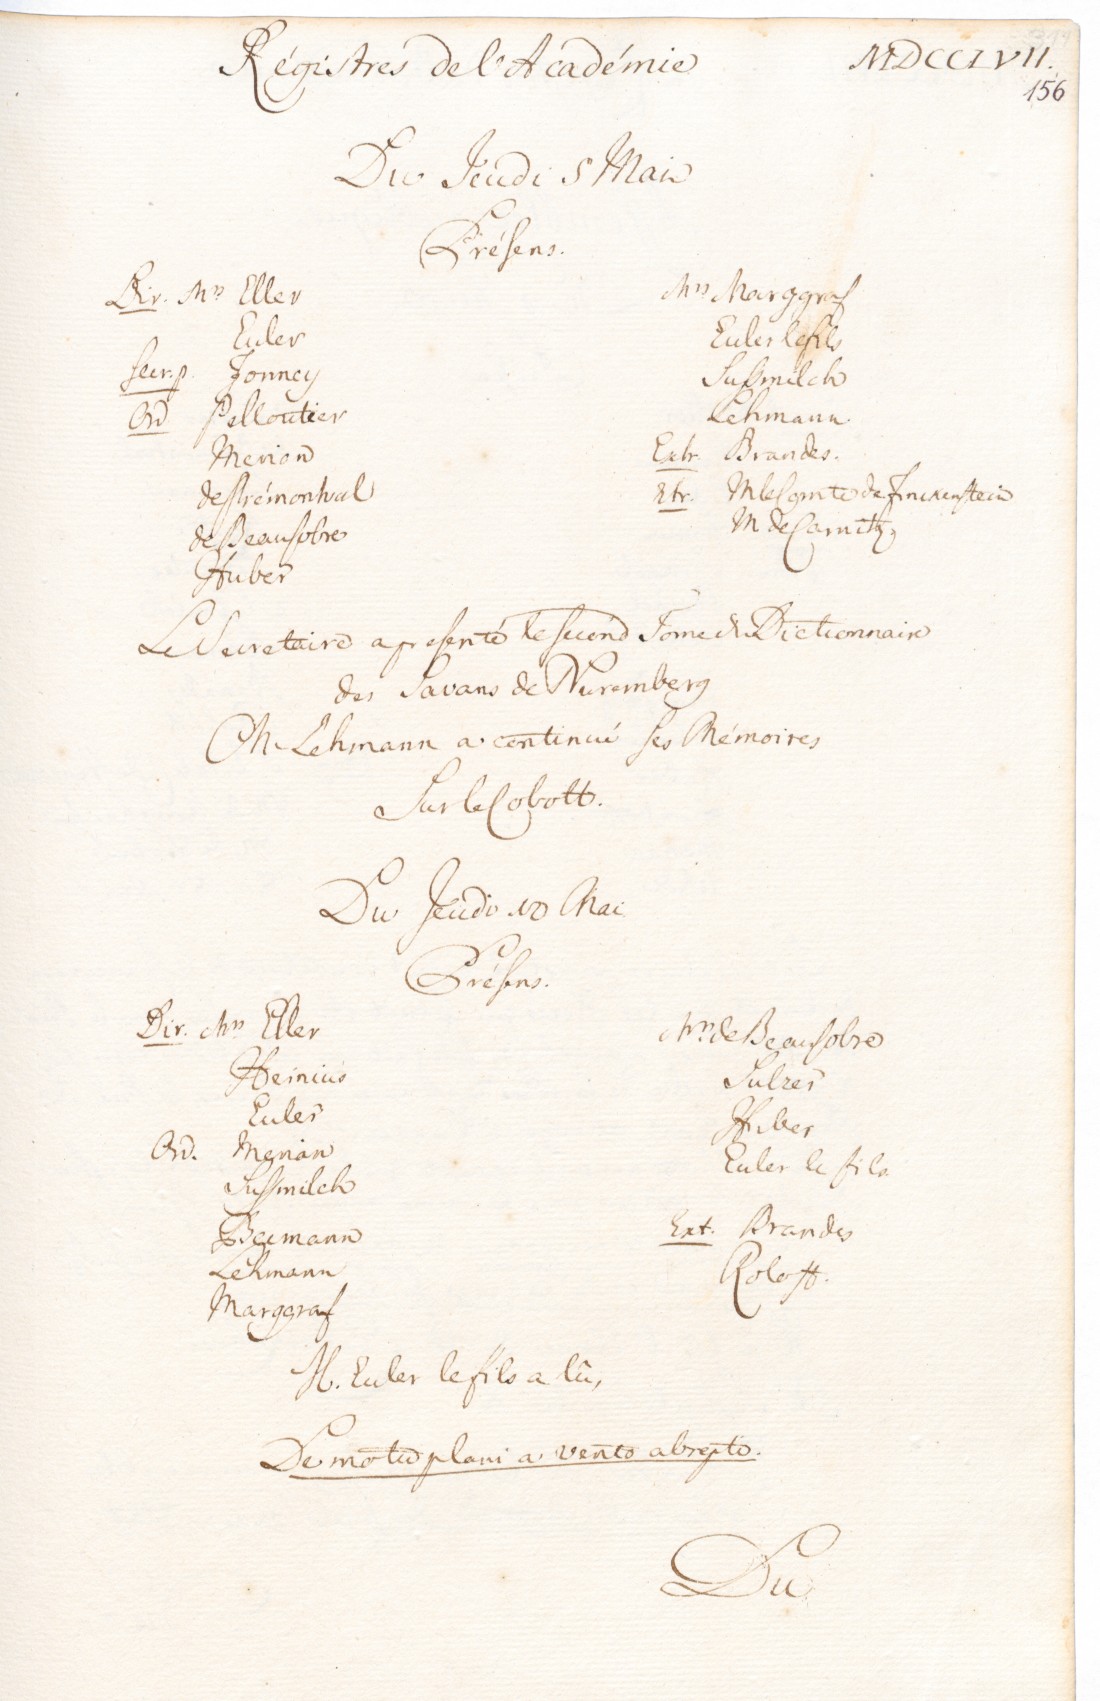 Régistres de l'Académie MDCCLVII.
156
Du Jeudi 5 Mai
Présens.
Dir. Mrs Eller
Euler
Secr. p. Formey
Ord Pelloutier
Merian
de Prémontval
de Beausobre
Huber
Mrs Marggraf
Euler le fils
Susmilch
Lehmann
Extr. Brandes.
Etr. M le Comte de Finckenstein
M de
Le Secretaire a presenté le second Tome du Dictionnaire
des Savans de Nuremberg
M. Lehmann a continué ses Mémoires
Sur le Cobolt.
Du Jeudi Mai
Présens.
Dir. Mrs Eller
Heinius
Euler
Ord. Merian
Susmilch
Becmann
Lehmann
Marggraf
Mrs de Beausobre
Sulzer
Huber
Euler le fils
Ext. Brandes
Roloff.
M. Euler le fils a lû,
De motu plani a vento abrepto.
Du